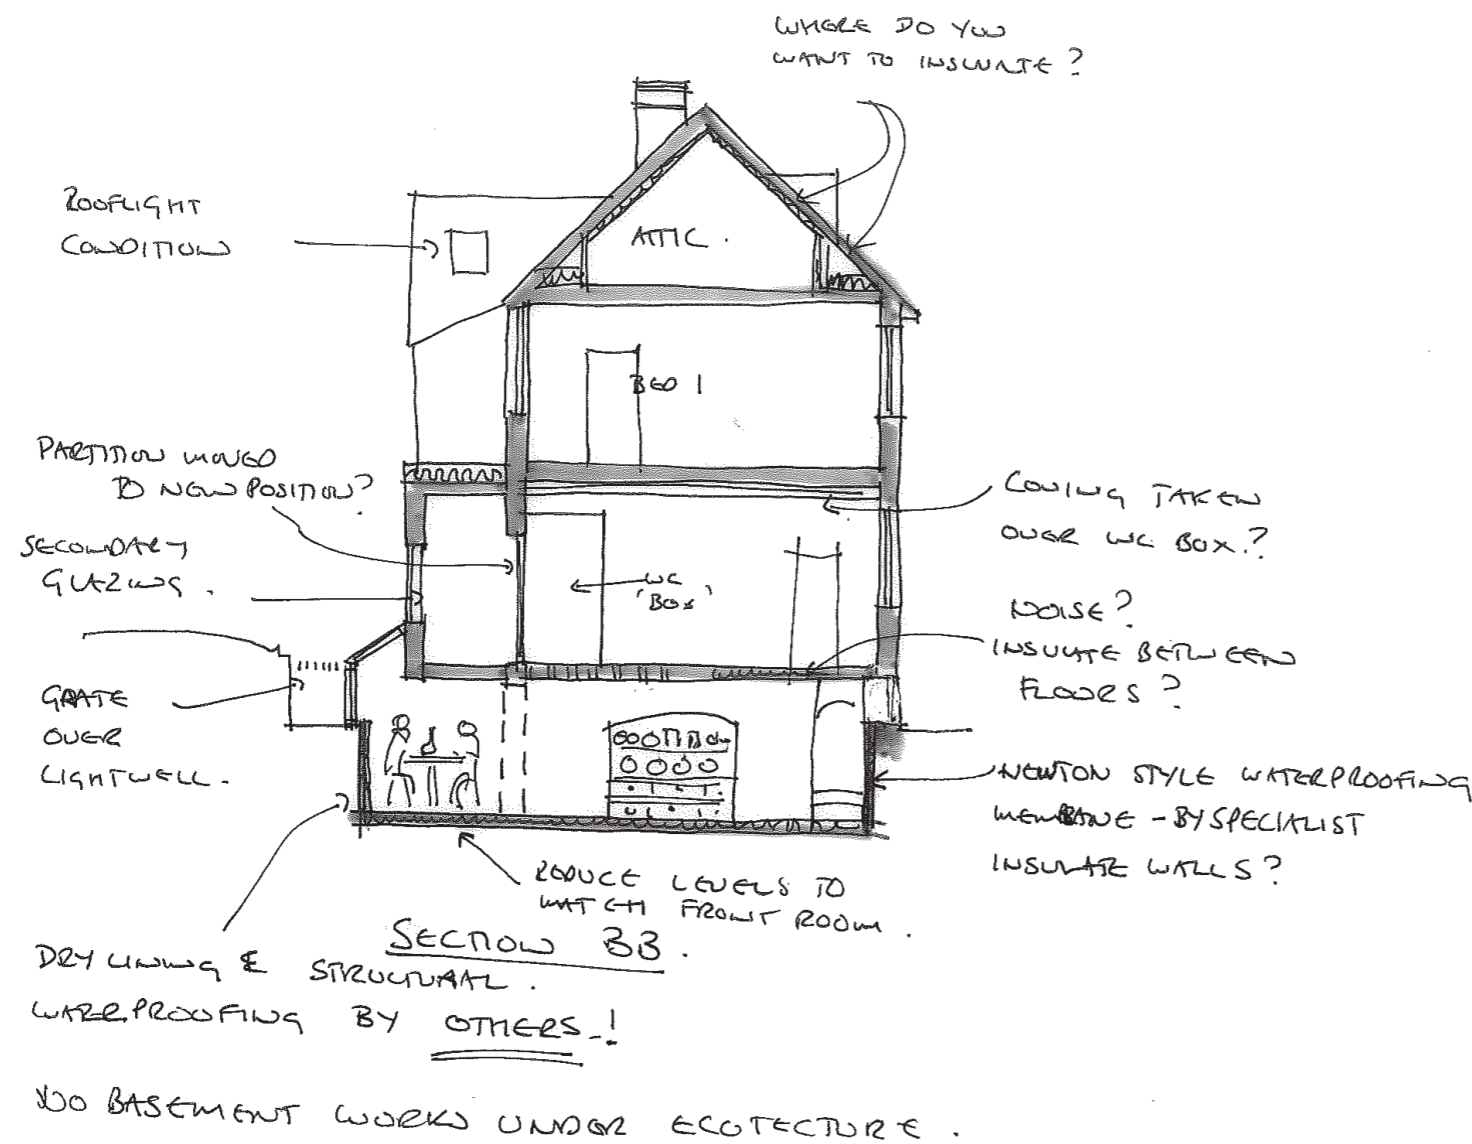 WHERE DO YOU
WANT TO INSULATE?
ROOFLIGHT
CONDITION
ATTIC.
BED 1
PARTITION MOVED
TO NEW POSITION?
SECONDARY
GLAZING.
COVING TAKEN
OVER WC BOX.?
WC
'BOX'
NOISE?
INSULATE BETWEEN
FLOORS?
GRATE
OVER
LIGHTWELL.
NEWTON STYLE WATERPROOFING
MEMBANE - BY SPECIALIST
INSULATE WALLS?
REDUCE LEVELS TO
MATCH FRONT ROOM.
SECTION BB.
DRY LINING & STRUCTURAL.
WATERPROOFING BY OTHERS-!
NO BASEMENT WORKS UNDER ECOTECTURE.